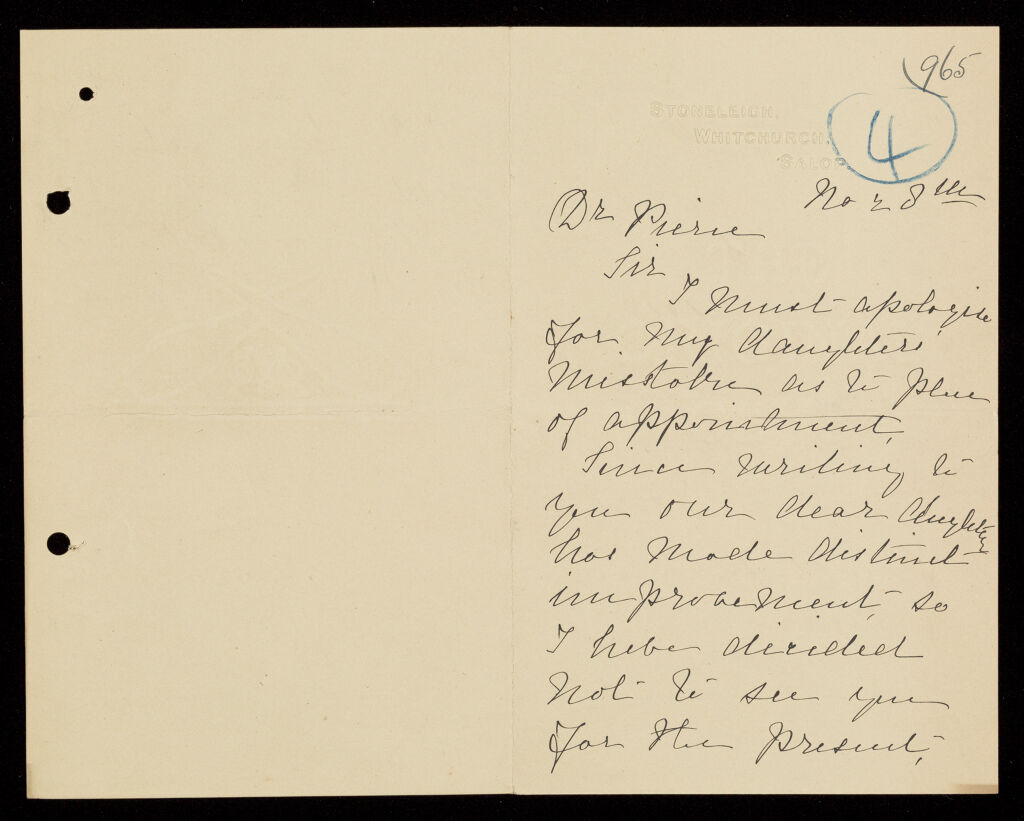 965
4
STONELEIGH,
WHITCHURCH,
SALOP.
Nov 8th
Dr Pierce
Sir
I must apologise
for my daughters
mistake as to place
of appointment,
Since writing to
you our dear daughter
has made distinct
improvement, so
I have decided
not to see you
for the present,